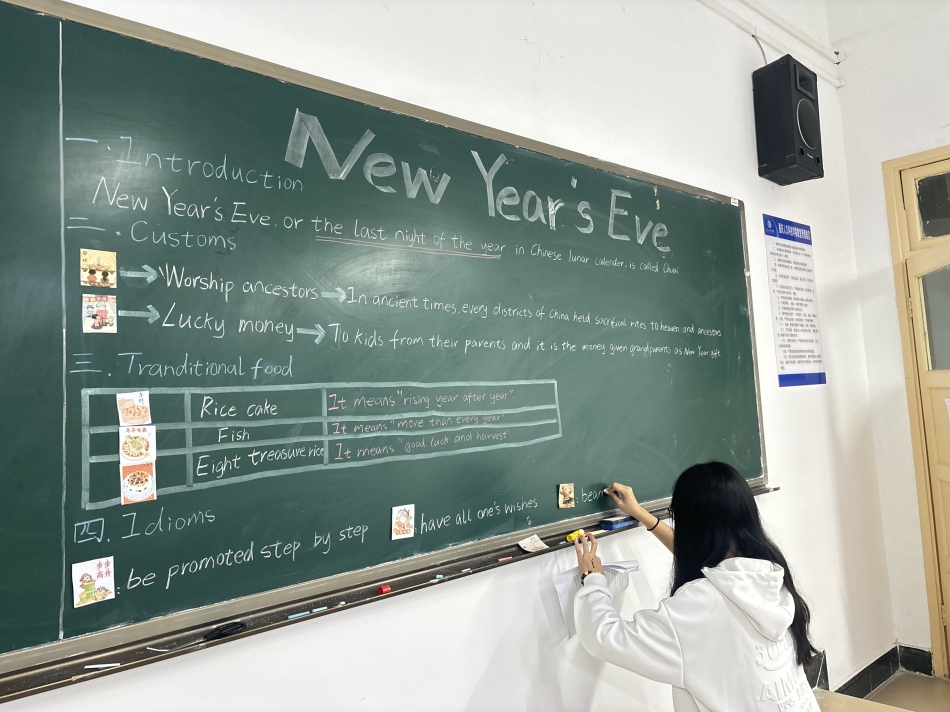 New Year's Eve
一.Introduction
New Year's Eve. or the last night of the year in Chinese lunar calender. is called Chuxi
二.Customs
Worship ancestors In ancient times. every districts of China held sacrificial rites to heaven and ancestors
Lucky money To kids from their parents and it is the money given grandparents as New Year gift
三.Tranditional food
Rice cake It means "rising year after year".
Fish It means "more than every year"
Eight treasure rice It means "good luck and harvest"
四.Idioms
步步高升 : be promoted step by step : have all one's wishes : bean